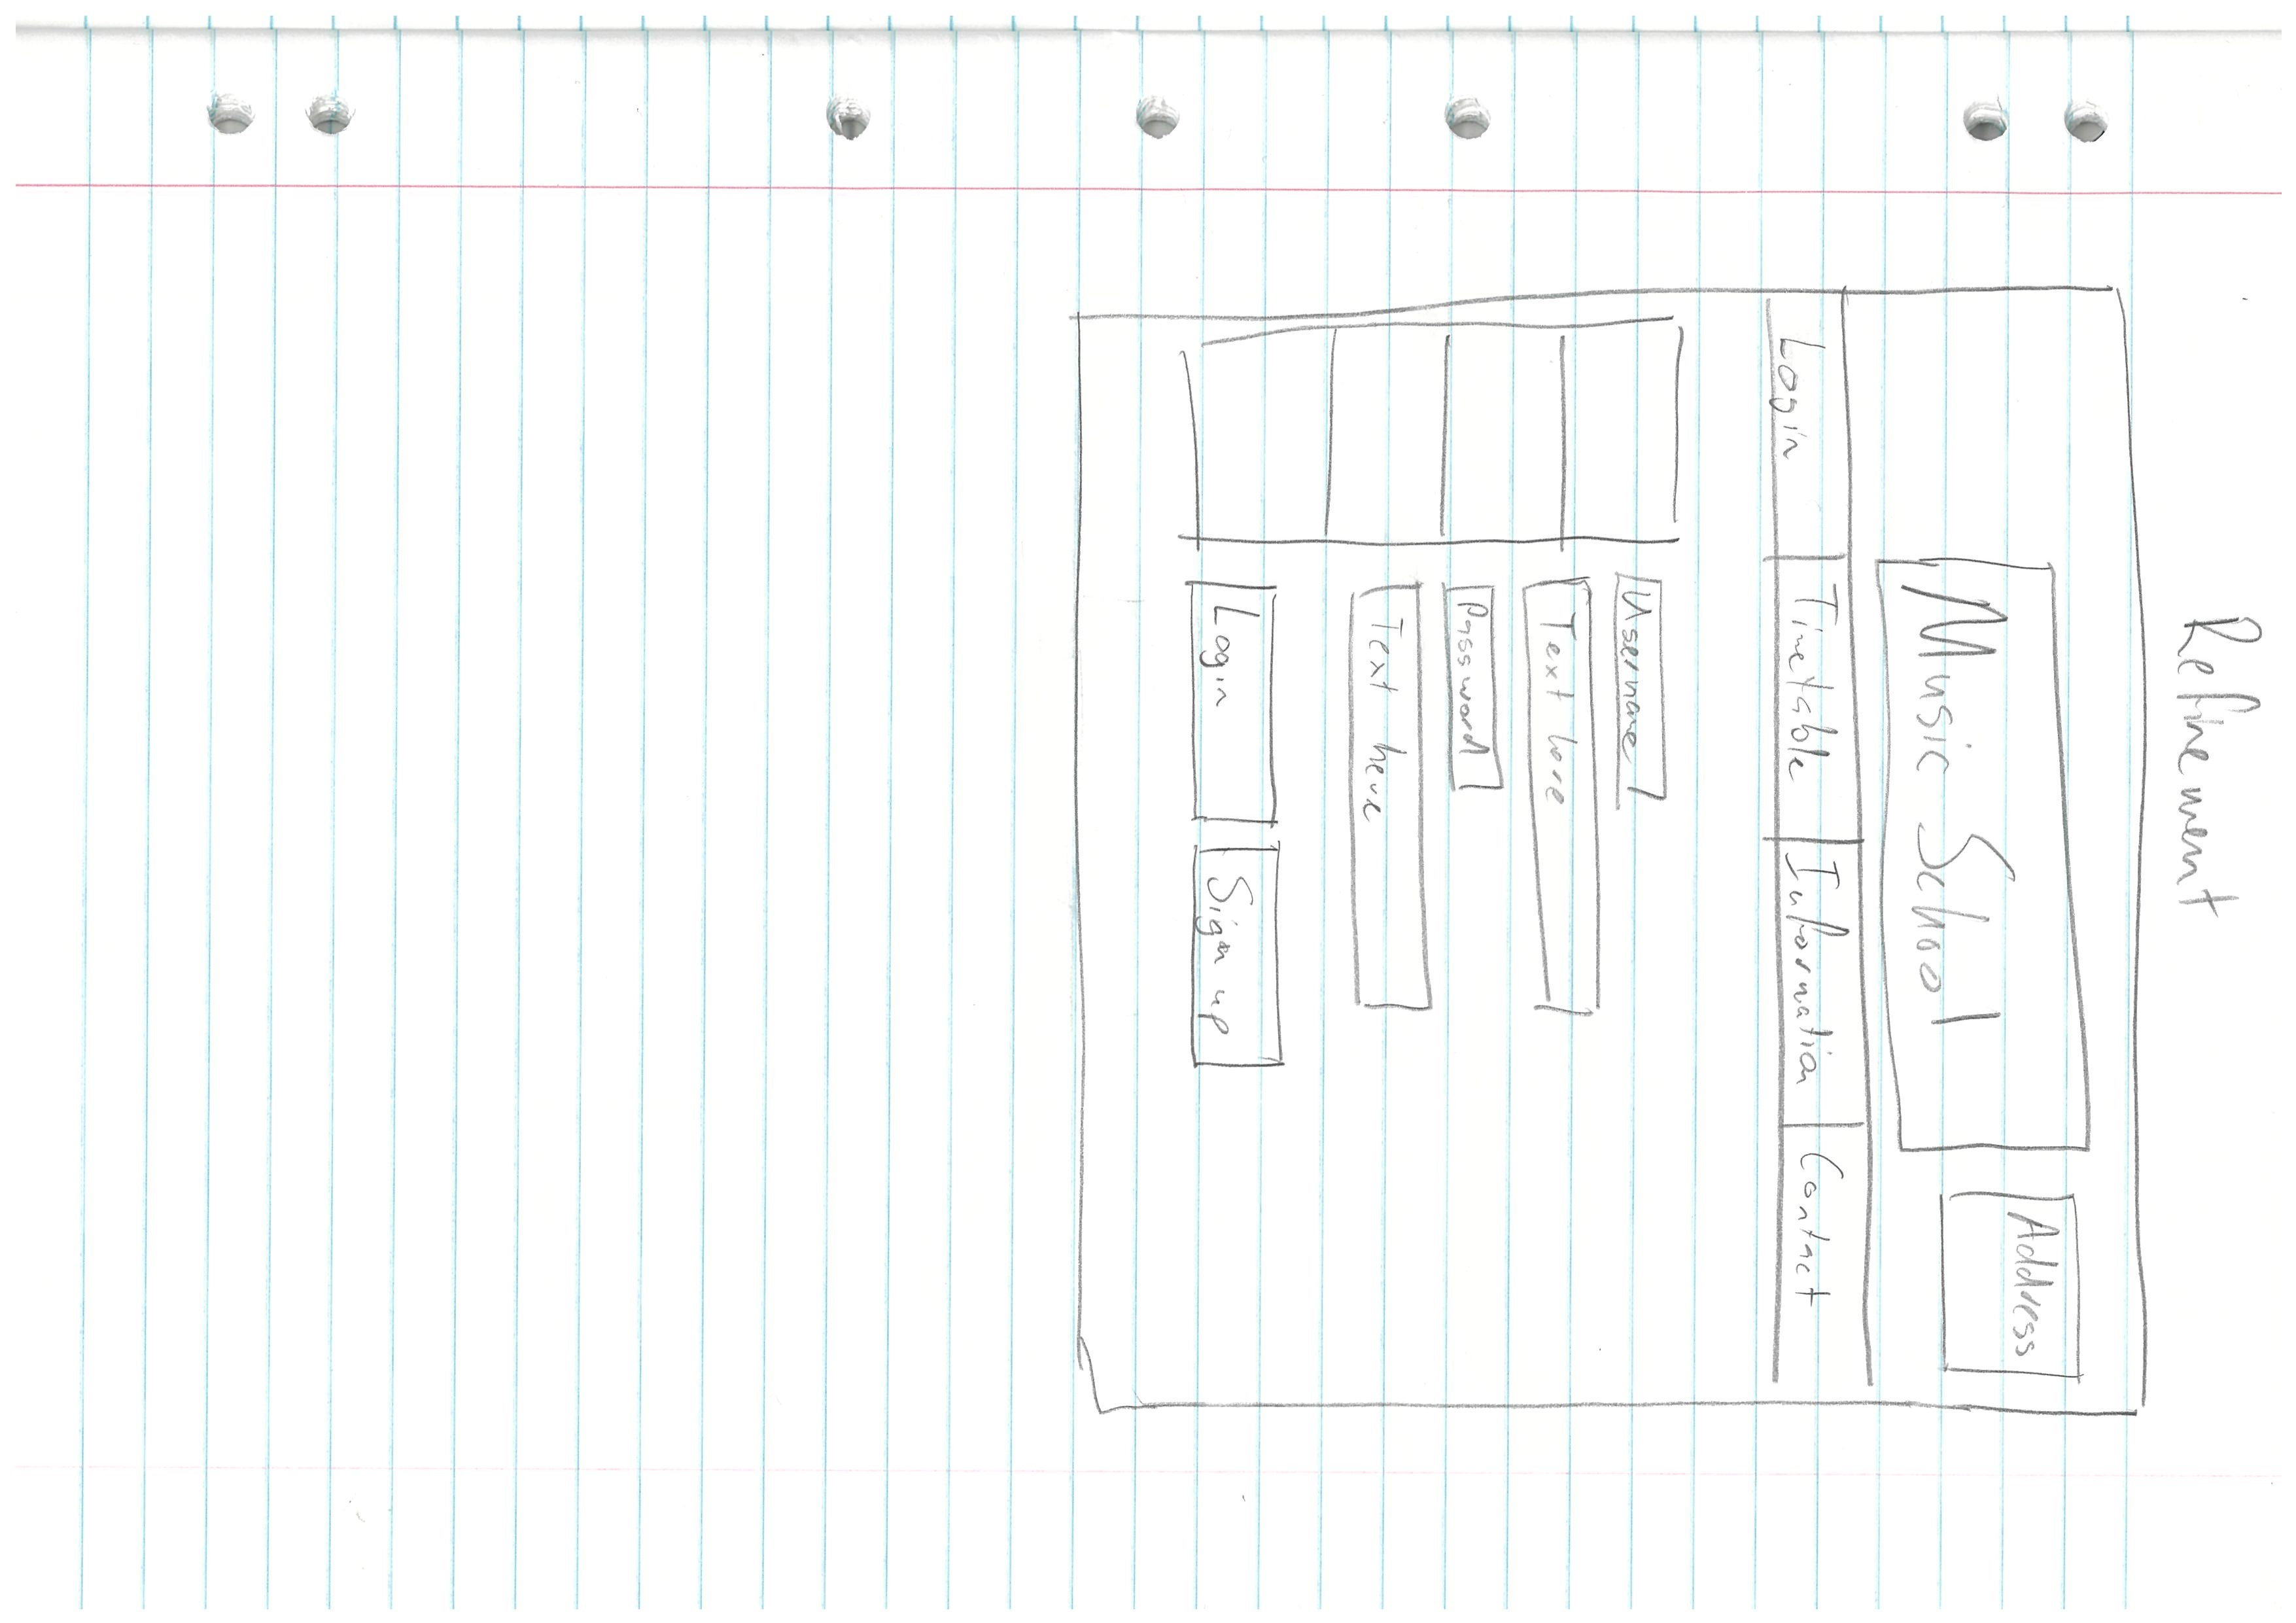 Refinement
Music School
Address
Login Timetable Information Contact
Username
Text here
Password
Text here
Login Sign up